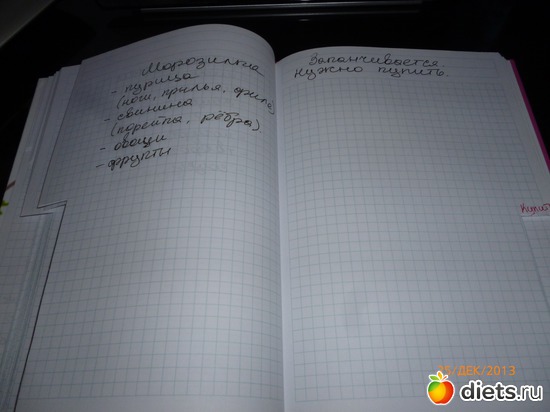 Морозилка
- курица
(ноги, крылья, филе)
- свинина
(корейка, рёбра)
- овощи
- фрукты
Заканчивается.
Нужно купить.
15/ДЕК/2013
diets.ru